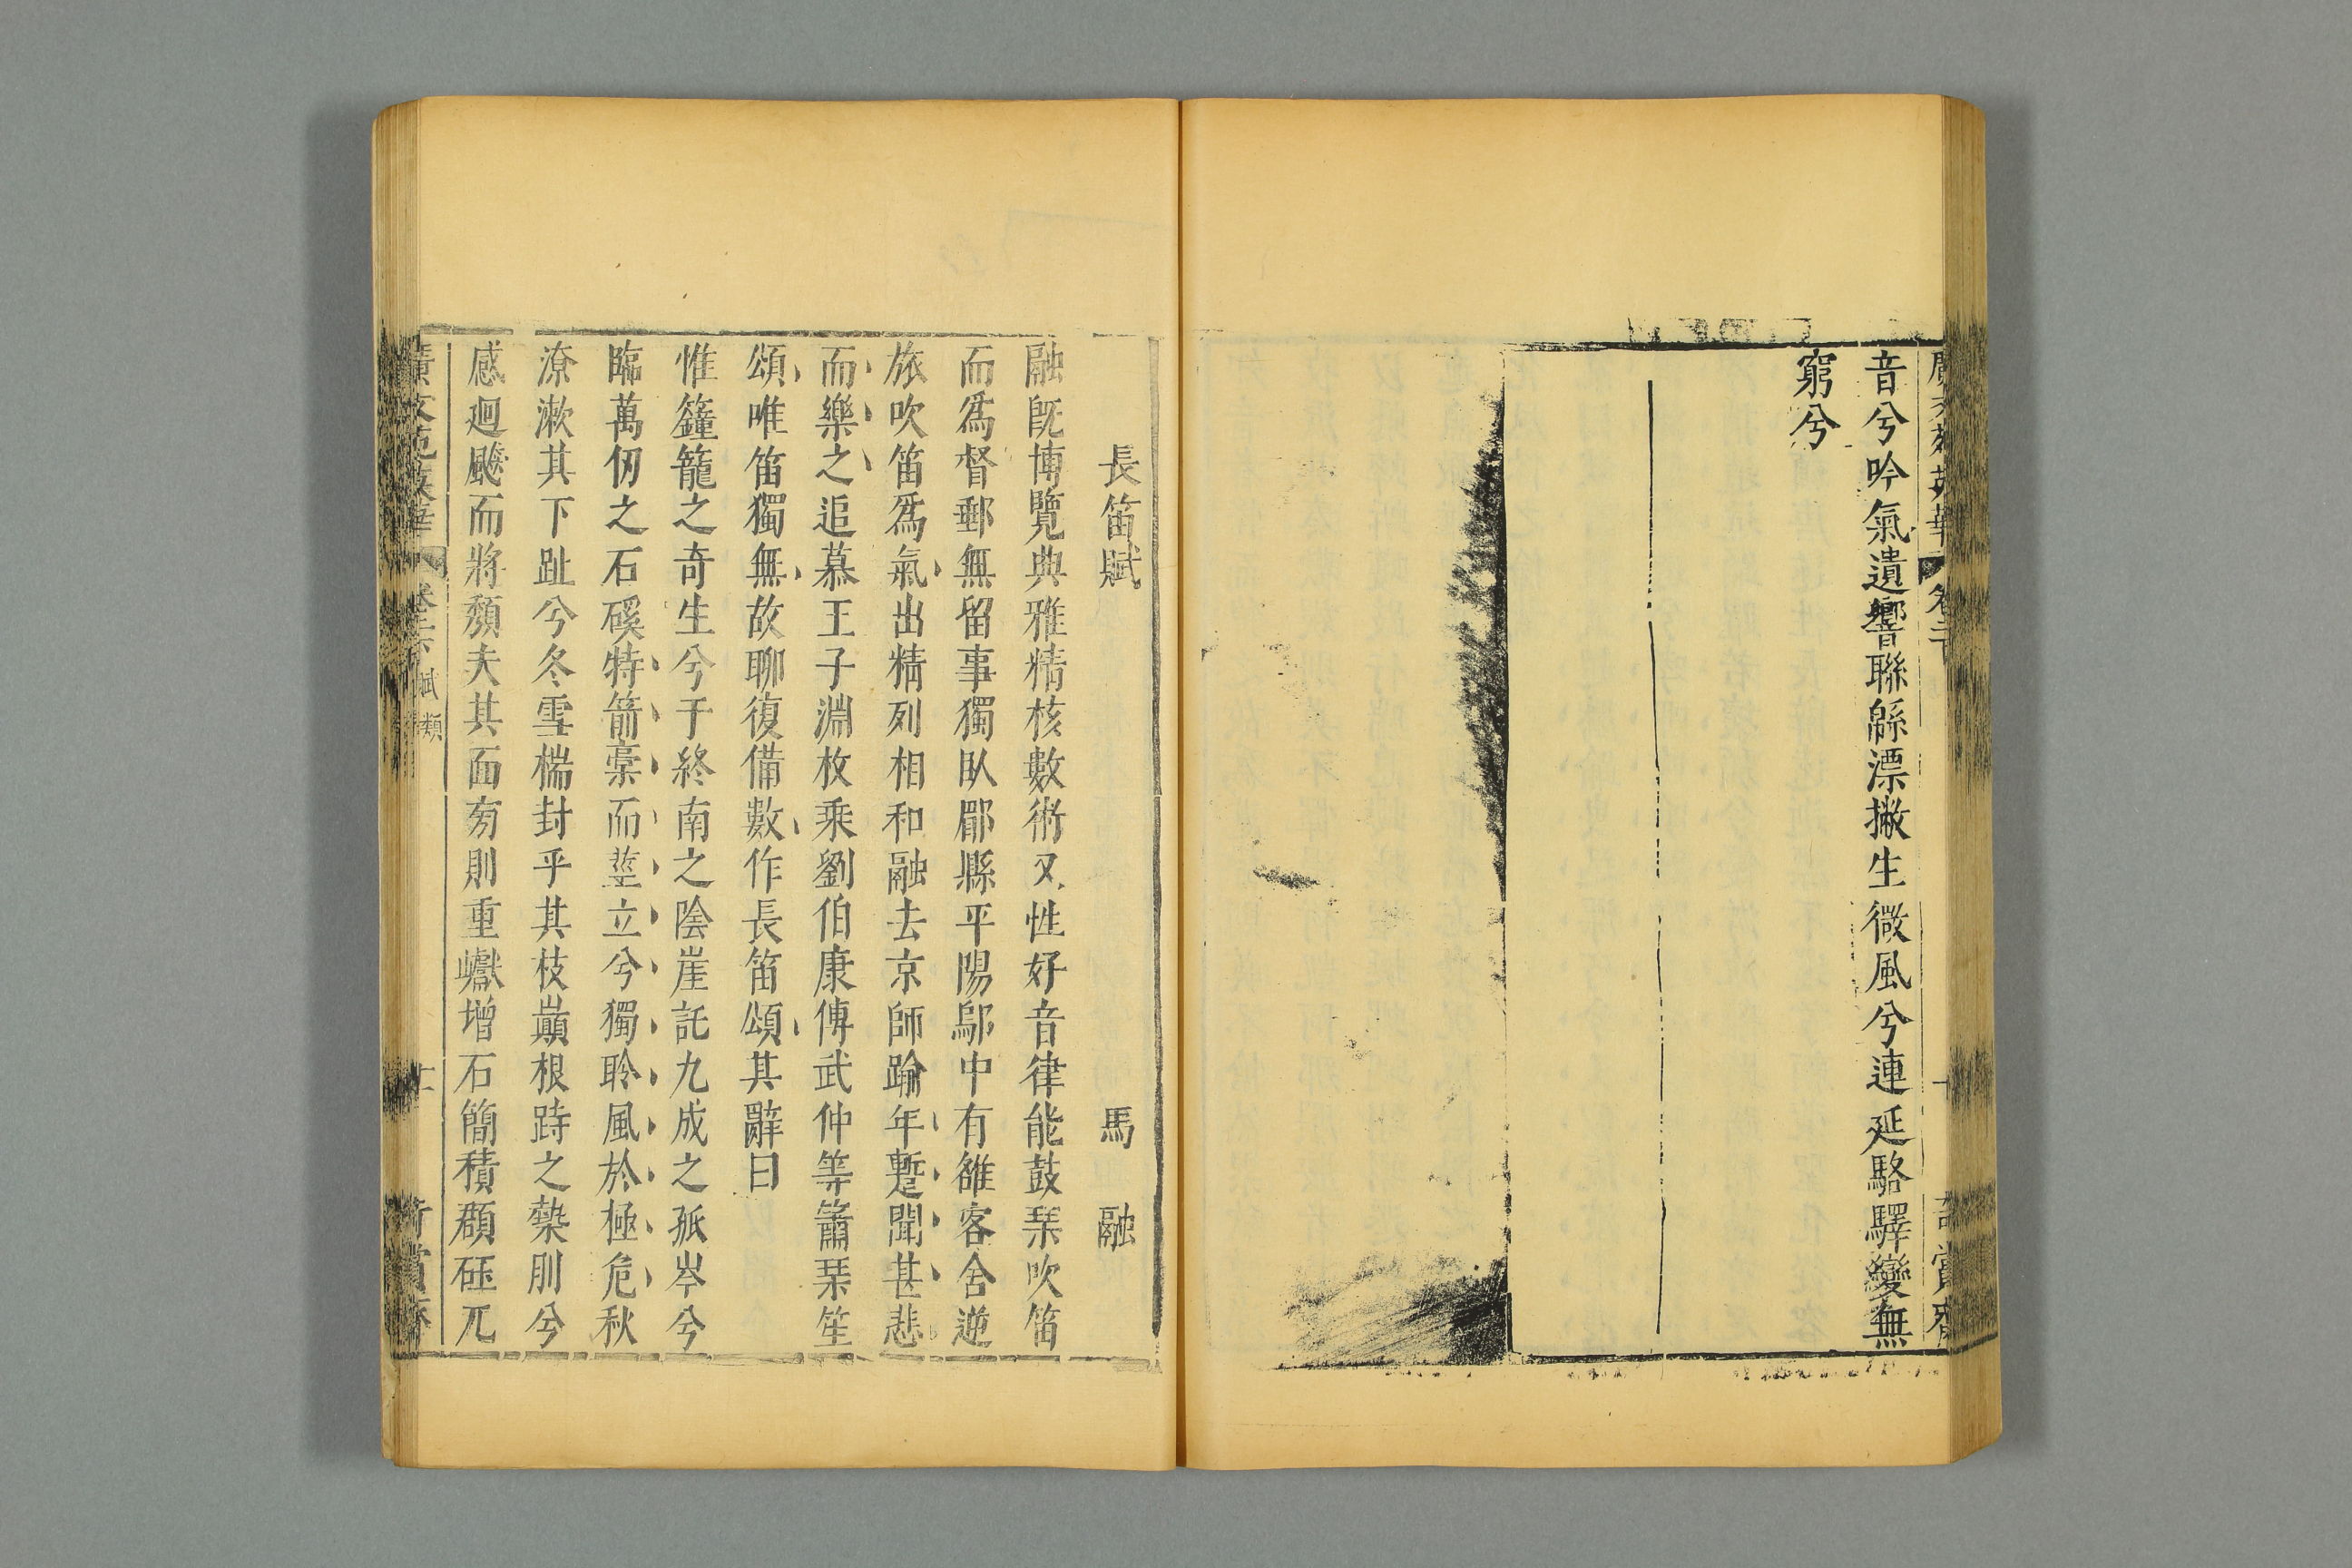 音兮吟氣遺響聯緜漂撇生微風兮連延駱驛變無
窮兮
長笛賦 馬融
融旣博覽典雅精核數術又性好音律能鼓琹吹笛
而爲督郵無留事獨臥郿縣平陽鄔中有雒客舍逆
旅吹笛爲氣出精列相和融去京師踰年蹔聞甚悲
而樂之追慕王子淵枚乘劉伯康傅武仲等簫琹笙
頌唯笛獨無故聊復備數作長笛頌其辭曰
惟籦籠之奇生兮于終南之陰崖託九成之孤岑兮
臨萬仞之石磎特箭槀而莖立兮獨聆風於極危秋
潦漱其下趾兮冬雪椯封乎其枝巓根跱之槷刖兮
感廻飈而將頽夫其面旁則重巘增石簡積頵砡兀
廣文苑英華 賦類 十一 奇賞齋